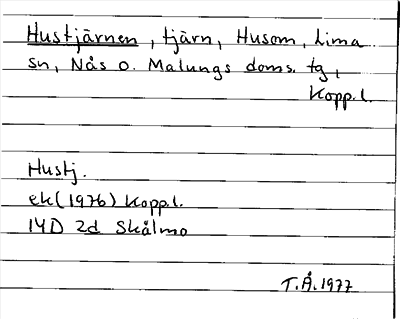 Hustjärnen, tjärn, Husom, Lima
sn, Nås o. Malungs doms. tg,
Kopp.l.
Hustj.
ek (1976) Kopp.l.
14D 2d Skålmo
T.Å. 1977